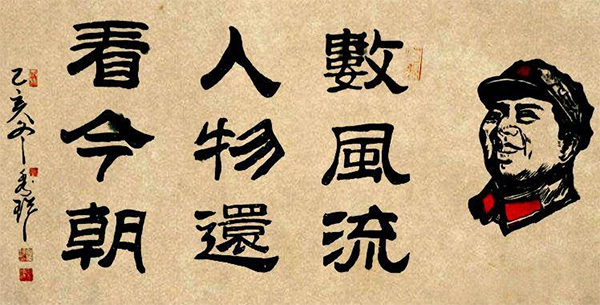 數風流
人物還
看今朝
乙亥